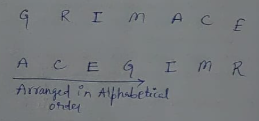 G R I M A C E
A C E G I M R
Arranged in Alphabetical
order